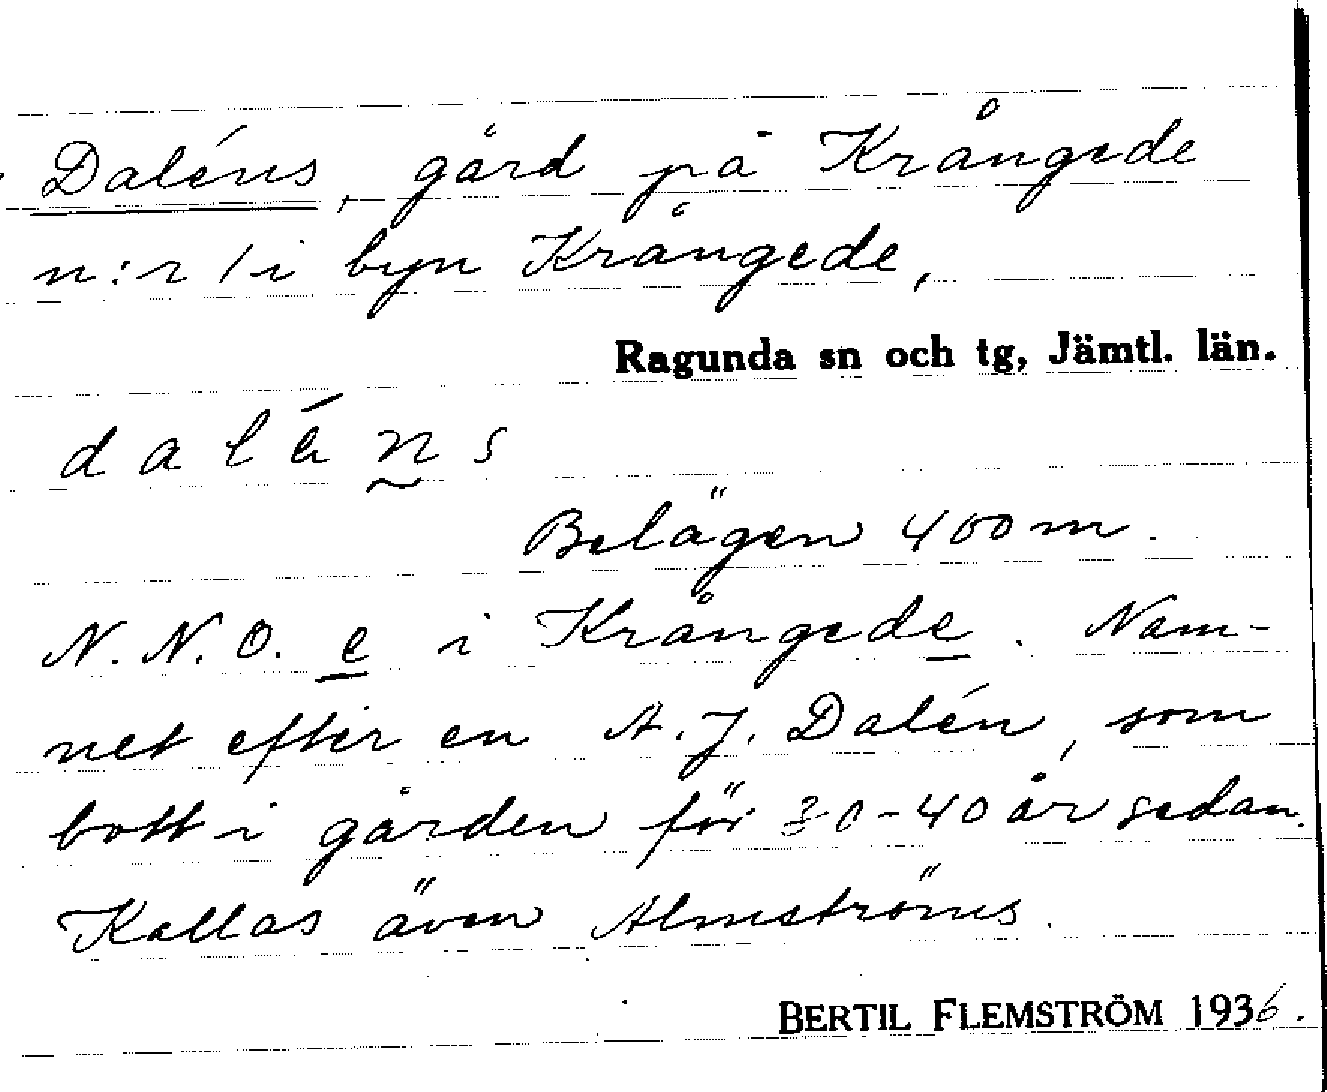 Daléns, gård på Krångede
n:r 1 i byn Krångede,
Ragunda sn och tg, Jämtl. län.
daléns
Belägen 400 m.
N.N.O. e i Krångede. Nam-
net efter en A.J. Dalén, som
bott i gården för 30-40 år sedan.
Kallas även Almströms.
BERTIL FLEMSTRÖM 1936.